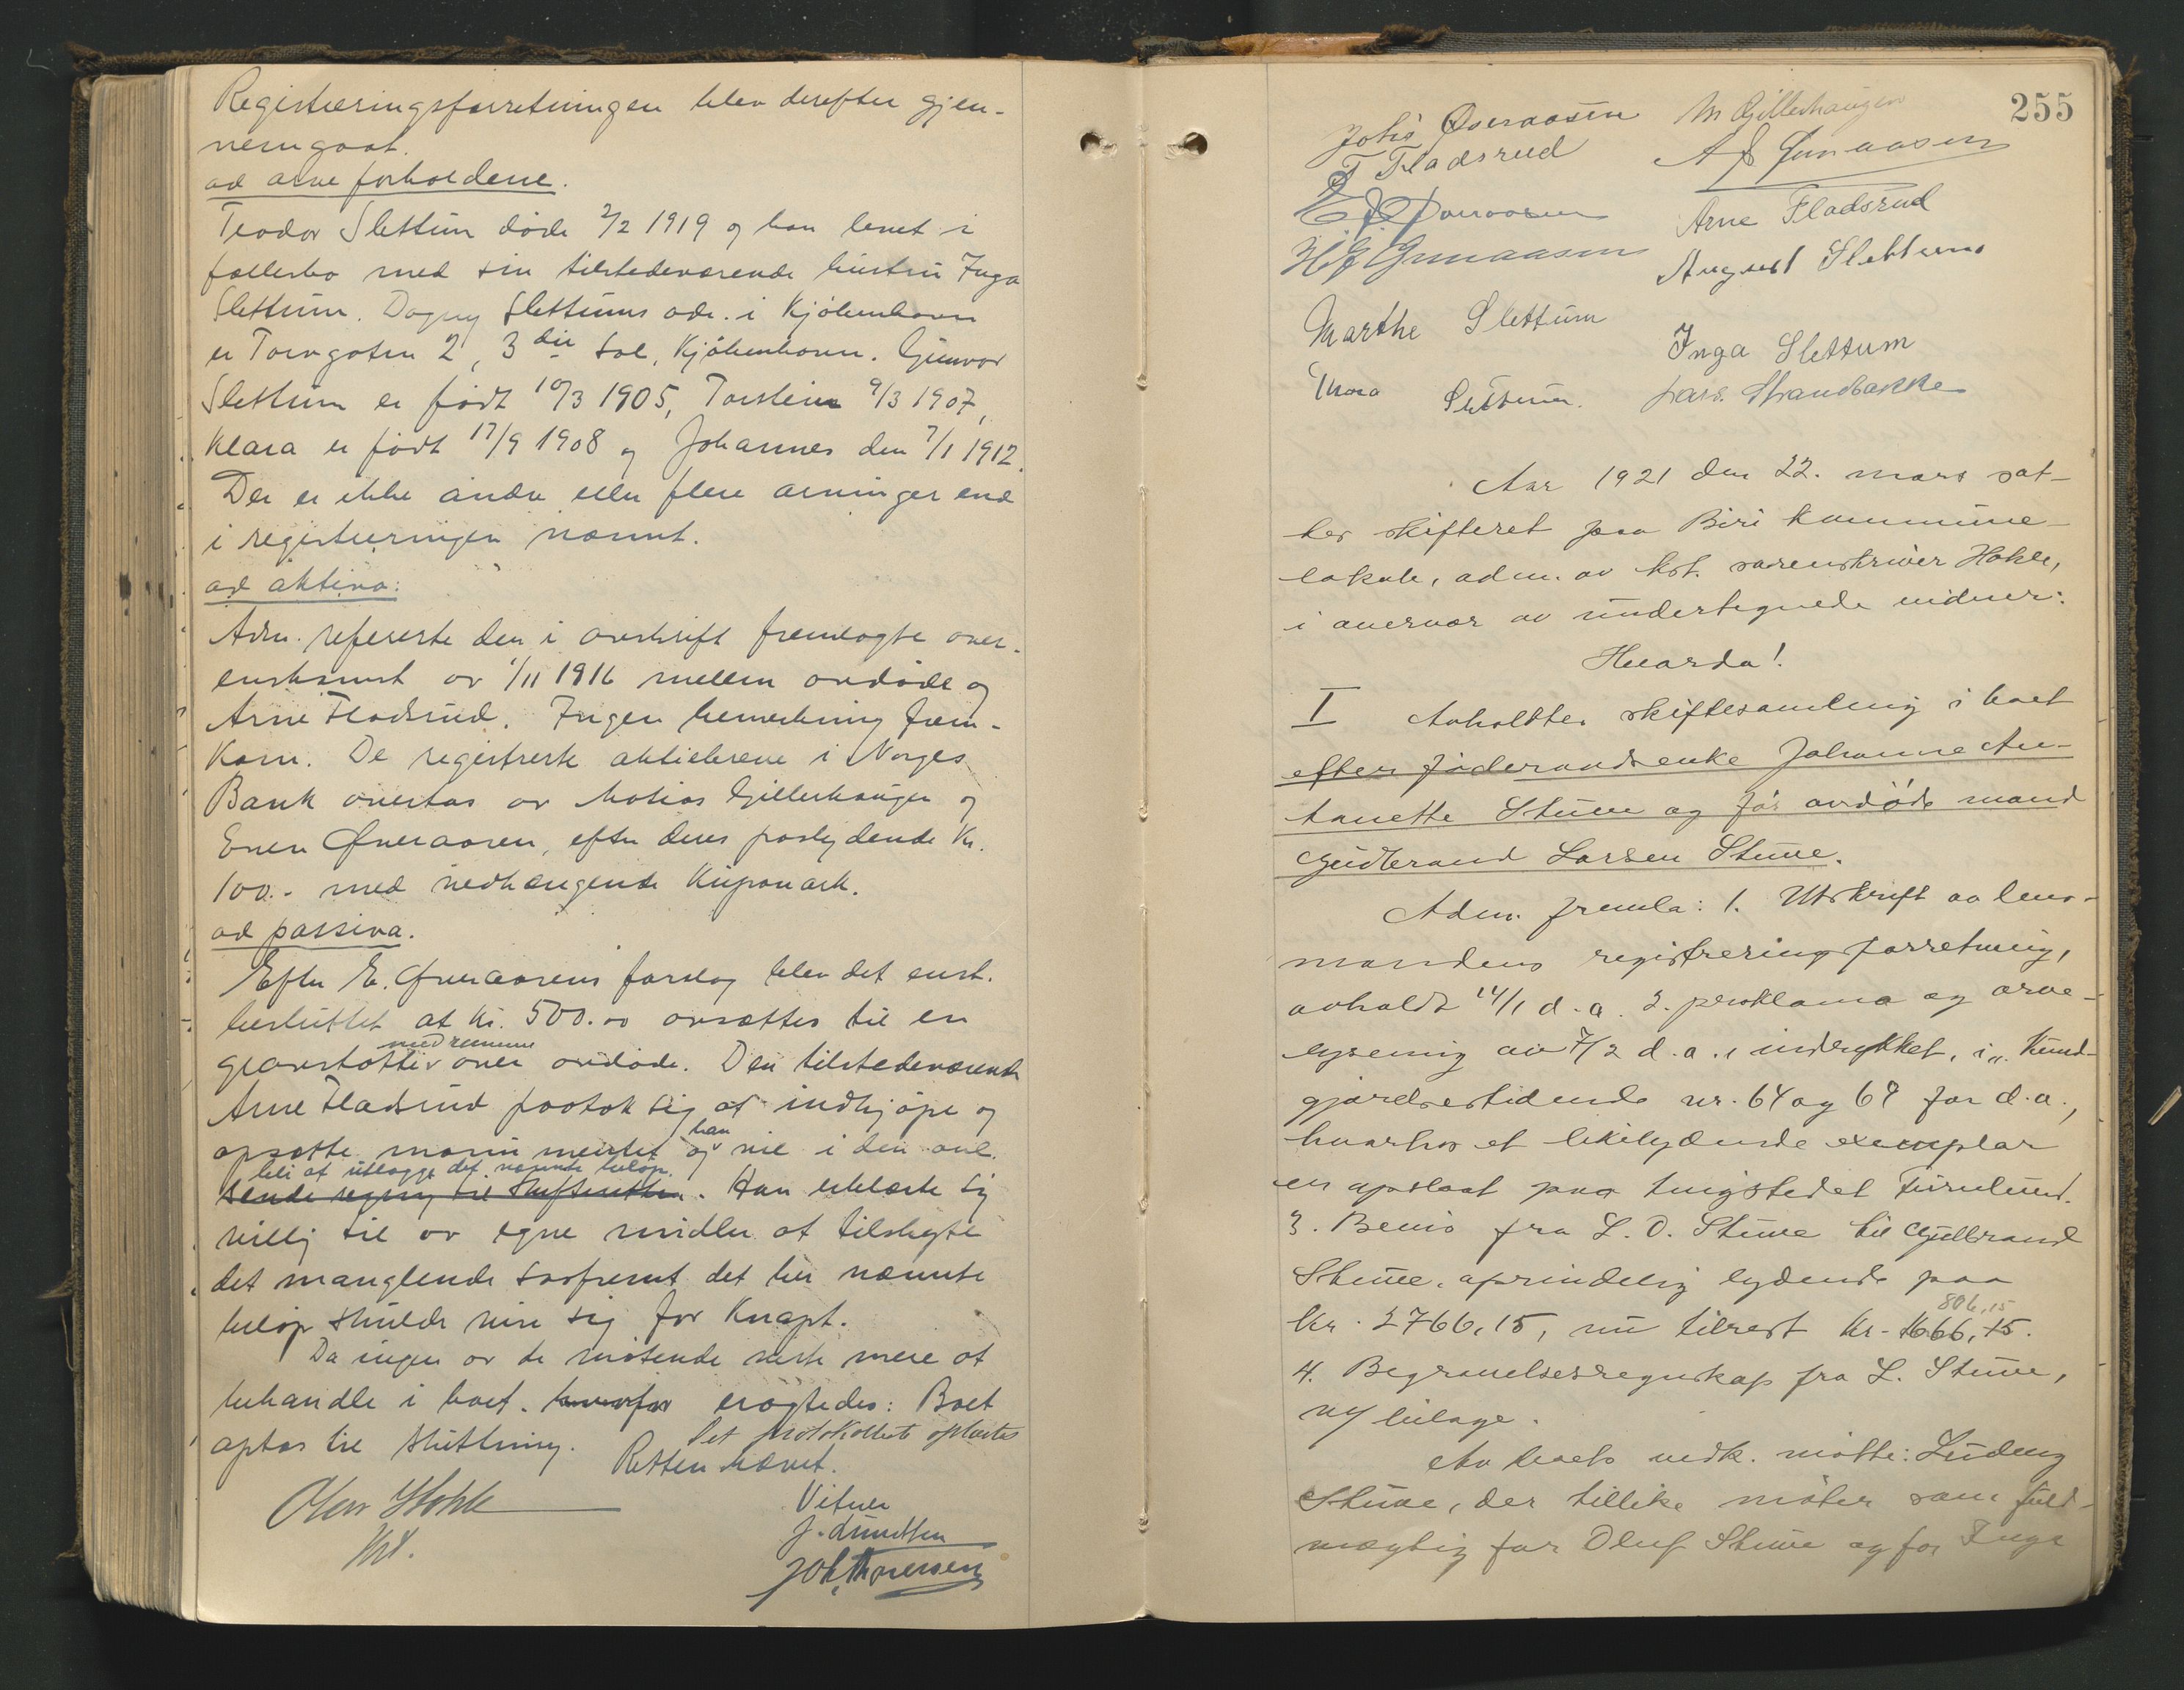 Registreringsforretningen blev derefter gjen-
nemgaat.
ad arveforholdene.
Teodor Slettum döde 2/2 1919 og han levet i
fællesbo med sin tilstedeværende hustru Inga
Slettum. Dagny Slettums adr. i Kjöbenhavn
er Torvgaten 2, 3die sal, Kjöbenhavn. Gunvor
Slettum er födt 10/3 1905, Torstein 9/3 1907,
Klara er födt 17/9 1908 og Johannes den 7/1 1912.
Der er ikke andre eller flere arvinger end
i registreringen nævnt.
ad aktiva:
Adm. refererte den i avskrift fremlagte over-
enskomst av 1/11 1916 mellem avdöde og
Arne Fladsrud. Ingen bemerkning frem-
kom. De registrerte aktiebreve i Norges
Bank overtas av Matias Gillerhaugen og
Even Øveraasen, efter deres paalydende Kr.
100.- med vedhængende Kuponark.
ad passiva.
Efter E. Øveraasens forslag blev det enst.
besluttet at kr. 500.00 avsættes til en
med ramme
gravstøtte over avdöde. Den tilstedeværende
Arne Fladsrud paatok sig at indkjöpe og
han
opsætte monumentet og vil i den anl.
bli at utlægge det nævnte belöp.
sende regning til Skifteretten. Han erklærte sig
villig til av egne midler at tilskyte
det manglende saafremt det her nævnte
belöp skulde vise sig for knapt.
Da ingen av de mötende visste mere at
behandle i boet. hvorfor eragtedes: Boet
optas til slutning. Det protokollerte oplæstes
Retten hævet.
Olav Hokle
kst.
Vitner
J. Amundsen
Joh. Thoresen
255
Johs Øveraasen M Gillerhaugen
T Fladsrud
Arne Fladsrud
August Slettum
Marthe Slettum
Inga Slettum
Thora Slettum. Lars. Strandbakke
Aar 1921 den 22. mars sat-
tes skifteret paa Biri kommune-
lokale, adm. av kst. sorenskriver Hokle,
i overvær av undertegnede vidner:
Hvorda!
I Avholdtes skiftesamling i boet
efter föderaadsenke Johanne An-
tonette Stuve og för avdöde mand
Gudbrand Larsen Stuve.
Adm. fremla: 1. Utskrift av lens-
mandens registreringsforretning,
avholdt 14/1 d.a. 2. proklama og arve-
lysning av 7/2 d.a. indrykket i „Kund-
gjörelsestidende nr. 64 og 69 for d.a.,
hvorhos et likelydende exemplar
er opslaat paa tingstedet Furulund.
3. Bevis fra L. O. Stuve til Gulbrand
Stuve, oprindelig lydende paa
806,15
Kr. 2766,15, nu tilrest Kr. 1666,15.
4. Begravelsesregnskap fra L. Stuve,
m/ bilage.
Av boets vedk. mötte: Ludvig
Stuve, der tillike möter som fuld-
mægtig for Oluf Stuve og for Inga